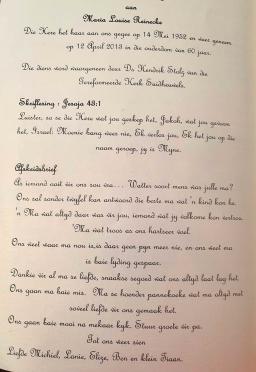 aan
Maria Louisa Reinecke
Die Here het haar aan ons gegee op 14 Mei 1952 en weer geneem
op 12 April 2013 in die ouderdom van 60 jaar.
Die diens word waargeneem deur Ds Hendrik Stolz van die
Gereformeerde Kerk Suidheuwels.
Skriflesing : Jesaja 43:1
Luister, so sê die Here wat jou geskep het, Jakob, wat jou gevorm
het, Israel: Moenie bang wees nie, Ek verlos jou, Ek het jou op die
naam geroep, jy is Myne.
Afskeidsbrief
As iemand ooit vir ons sou vra... Watter soort mens was julle ma?
Ons sal sonder twyfel kan antwoord die beste ma wat 'n kind kon hê.
'n Ma wat altyd daar was vir jou, iemand wat jy volkome kon vertrou.
'n Ma wat troos as ons hartseer voel.
Ons weet waar ma nou is, is daar geen pyn meer nie, en ons weet ma
is baie lyding gespaar.
Dankie vir al ma se liefde, snaakse segoed wat ons altyd laat lag het.
Ons gaan ma baie mis. Ma se hoender pannekoeke wat ma altyd met
soveel liefde vir ons gemaak het.
Ons gaan baie mooi na mekaar kyk. Stuur groete vir pa.
Tot ons weer sien
Liefde Michiel, Lanie, Elize, Ben en klein Tiaan.